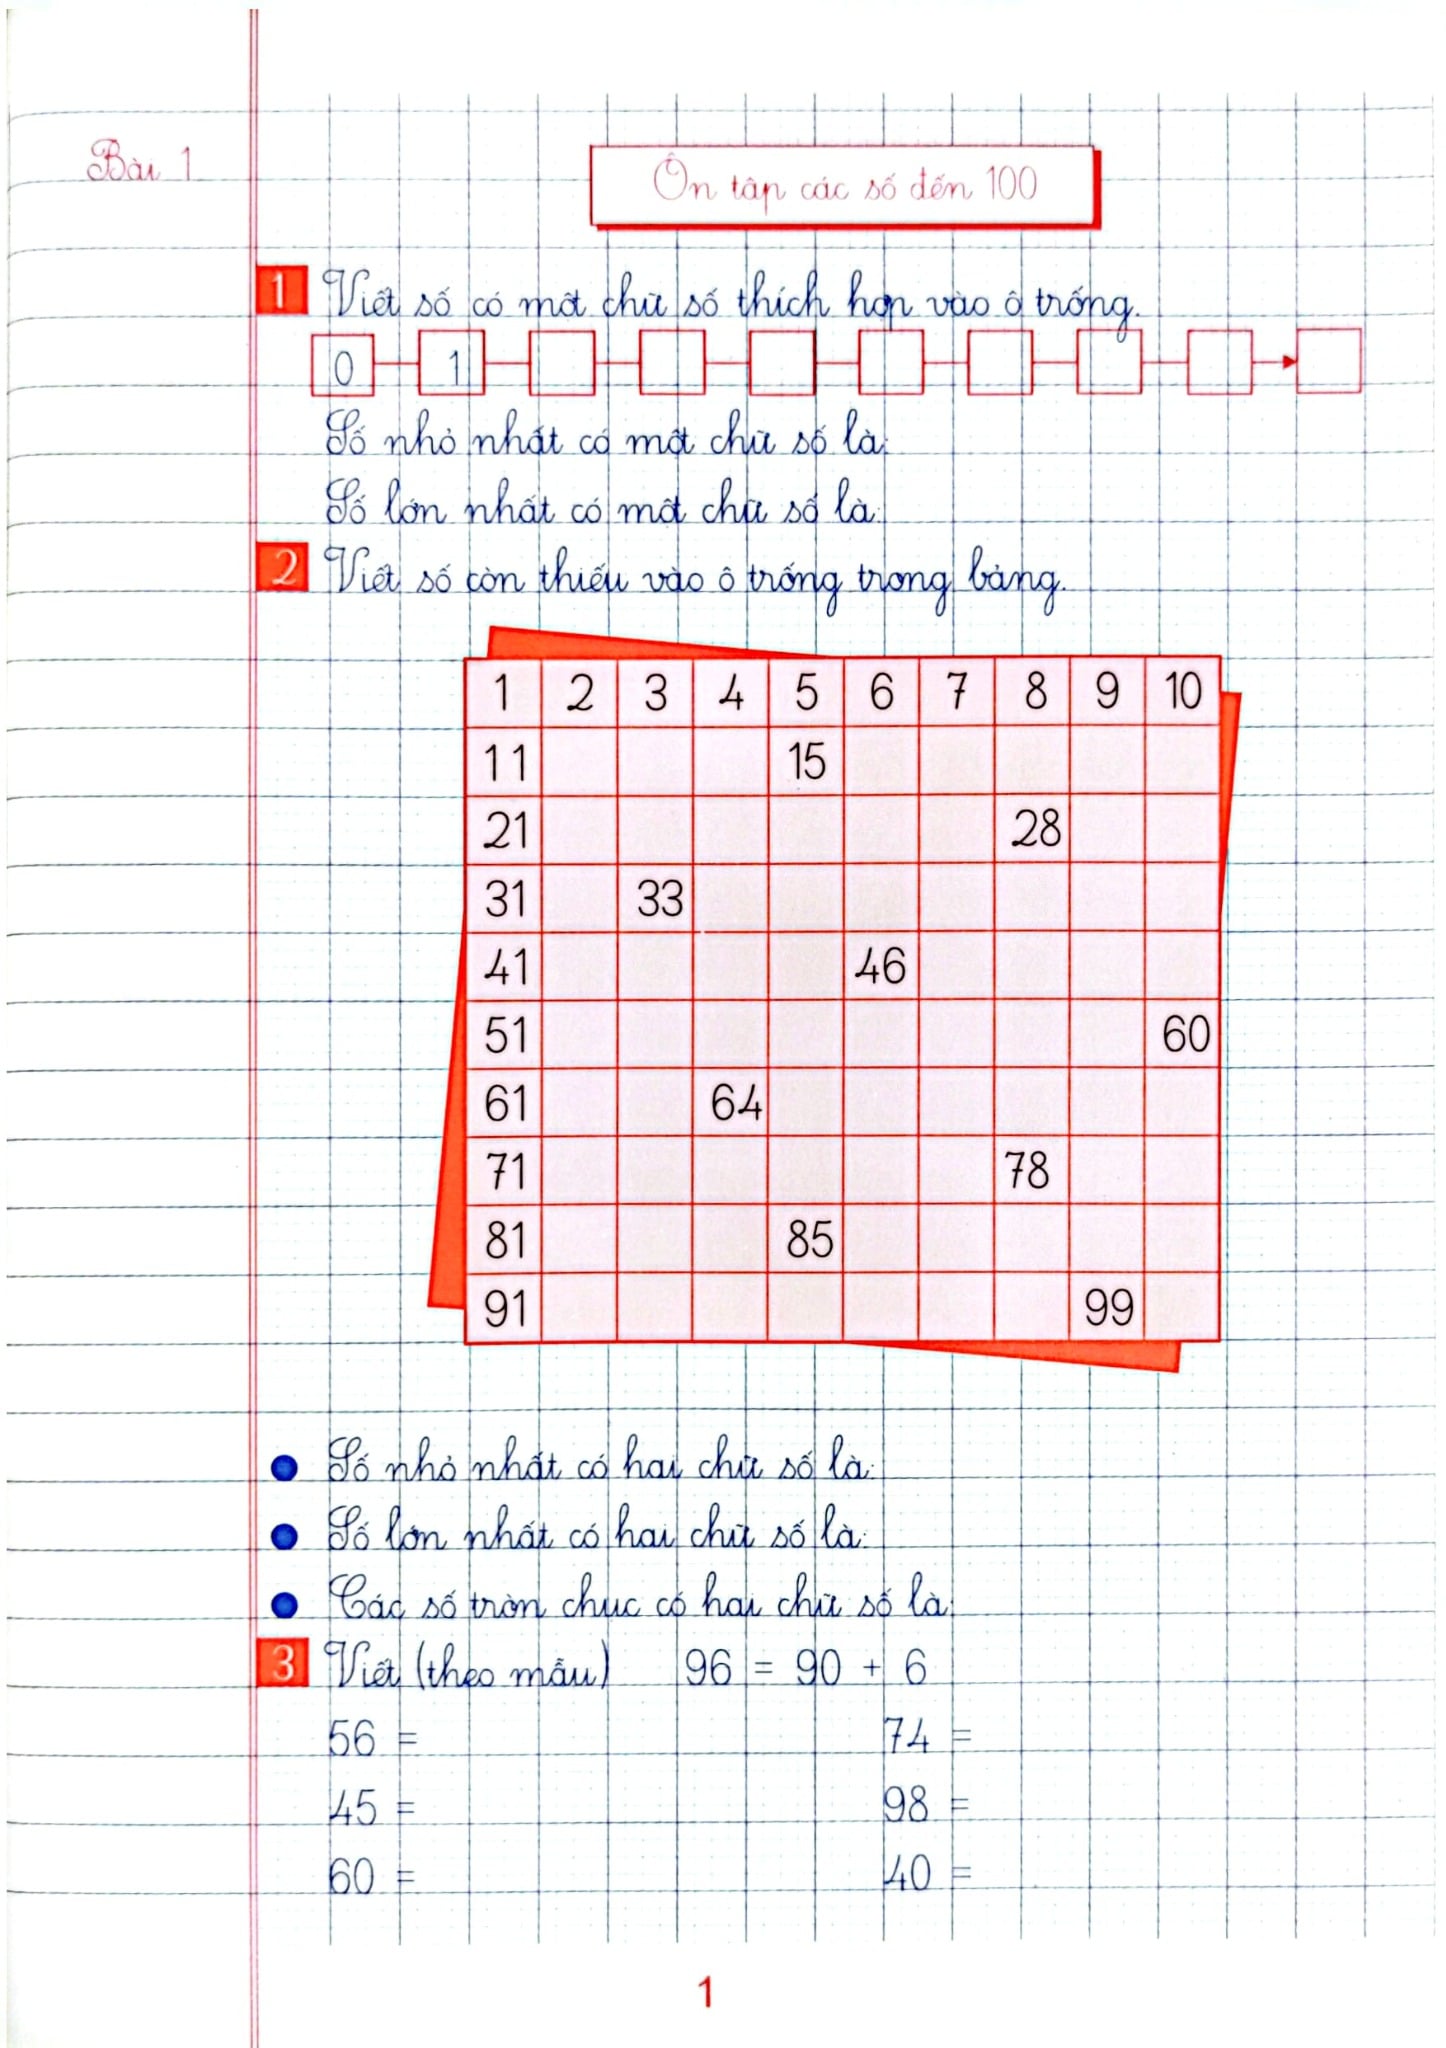 Bài 1
Ôn tập các số đến 100
1 Viết số có một chữ số thích hợp vào ô trống.
0 1
Số nhỏ nhất có một chữ số là:
Số lớn nhất có một chữ số là:
2 Viết số còn thiếu vào ô trống trong bảng.
1 2 3 4 5 6 7 8 9 10
11 15
21 28
31 33
41 46
51 60
61 64
71 78
81 85
91 99
Số nhỏ nhất có hai chữ số là:
Số lớn nhất có hai chữ số là:
Các số tròn chục có hai chữ số là:
3 Viết (theo mẫu) 96 = 90 + 6
56 = 74 =
45 = 98 =
60 = 40 =
1